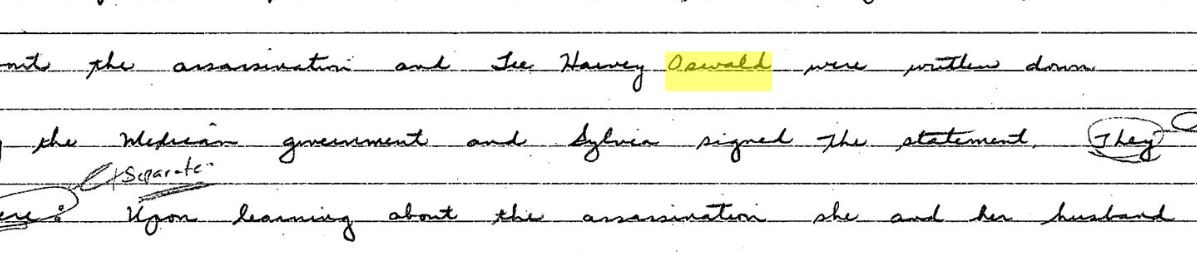 the assassination and Lee Harvey Oswald were written down
the Mexican government and Sylvia signed the statement. They
Separate
Upon learning about the assassination she and her husband